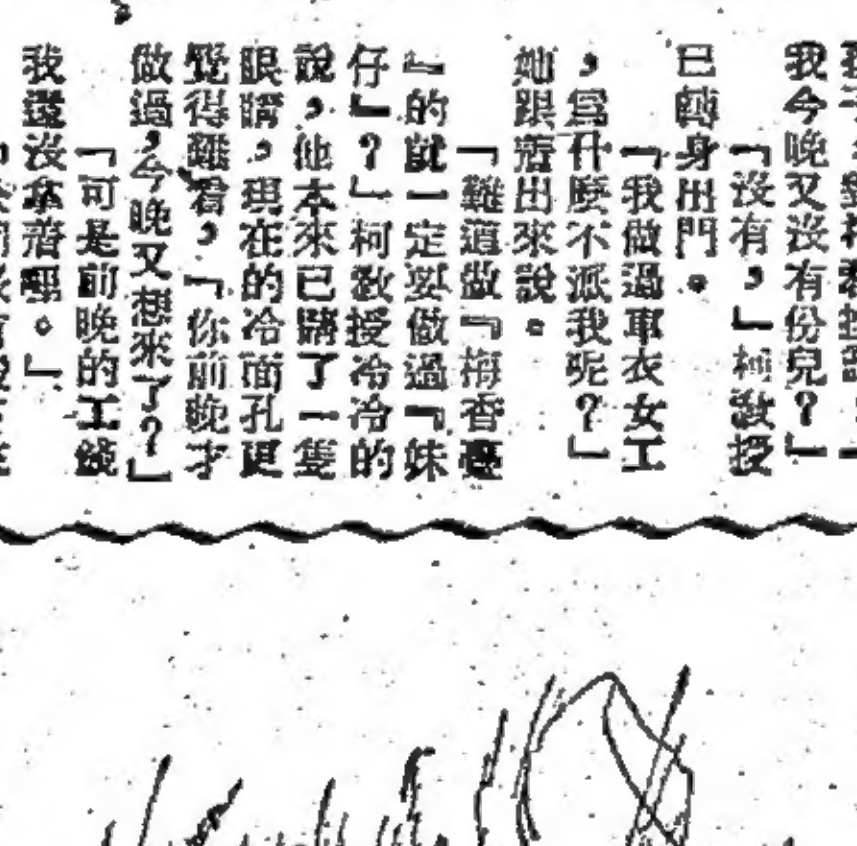 我今晚又沒有份兒？」
「沒有，」柯敎授
已轉身出門。
「我做過車衣女工
，爲什麼不派我呢？」
她跟着出來說。
「難道做『梅香
』的就一定要做過『妹
仔』？」柯敎授冷冷的
說，他本來已瞎了一隻
眼睛，現在的冷面孔更
覺得難看，「你前晚才
做過，今晚又想來了？」
「可是前晚的工錢
我還沒拿着哩。」